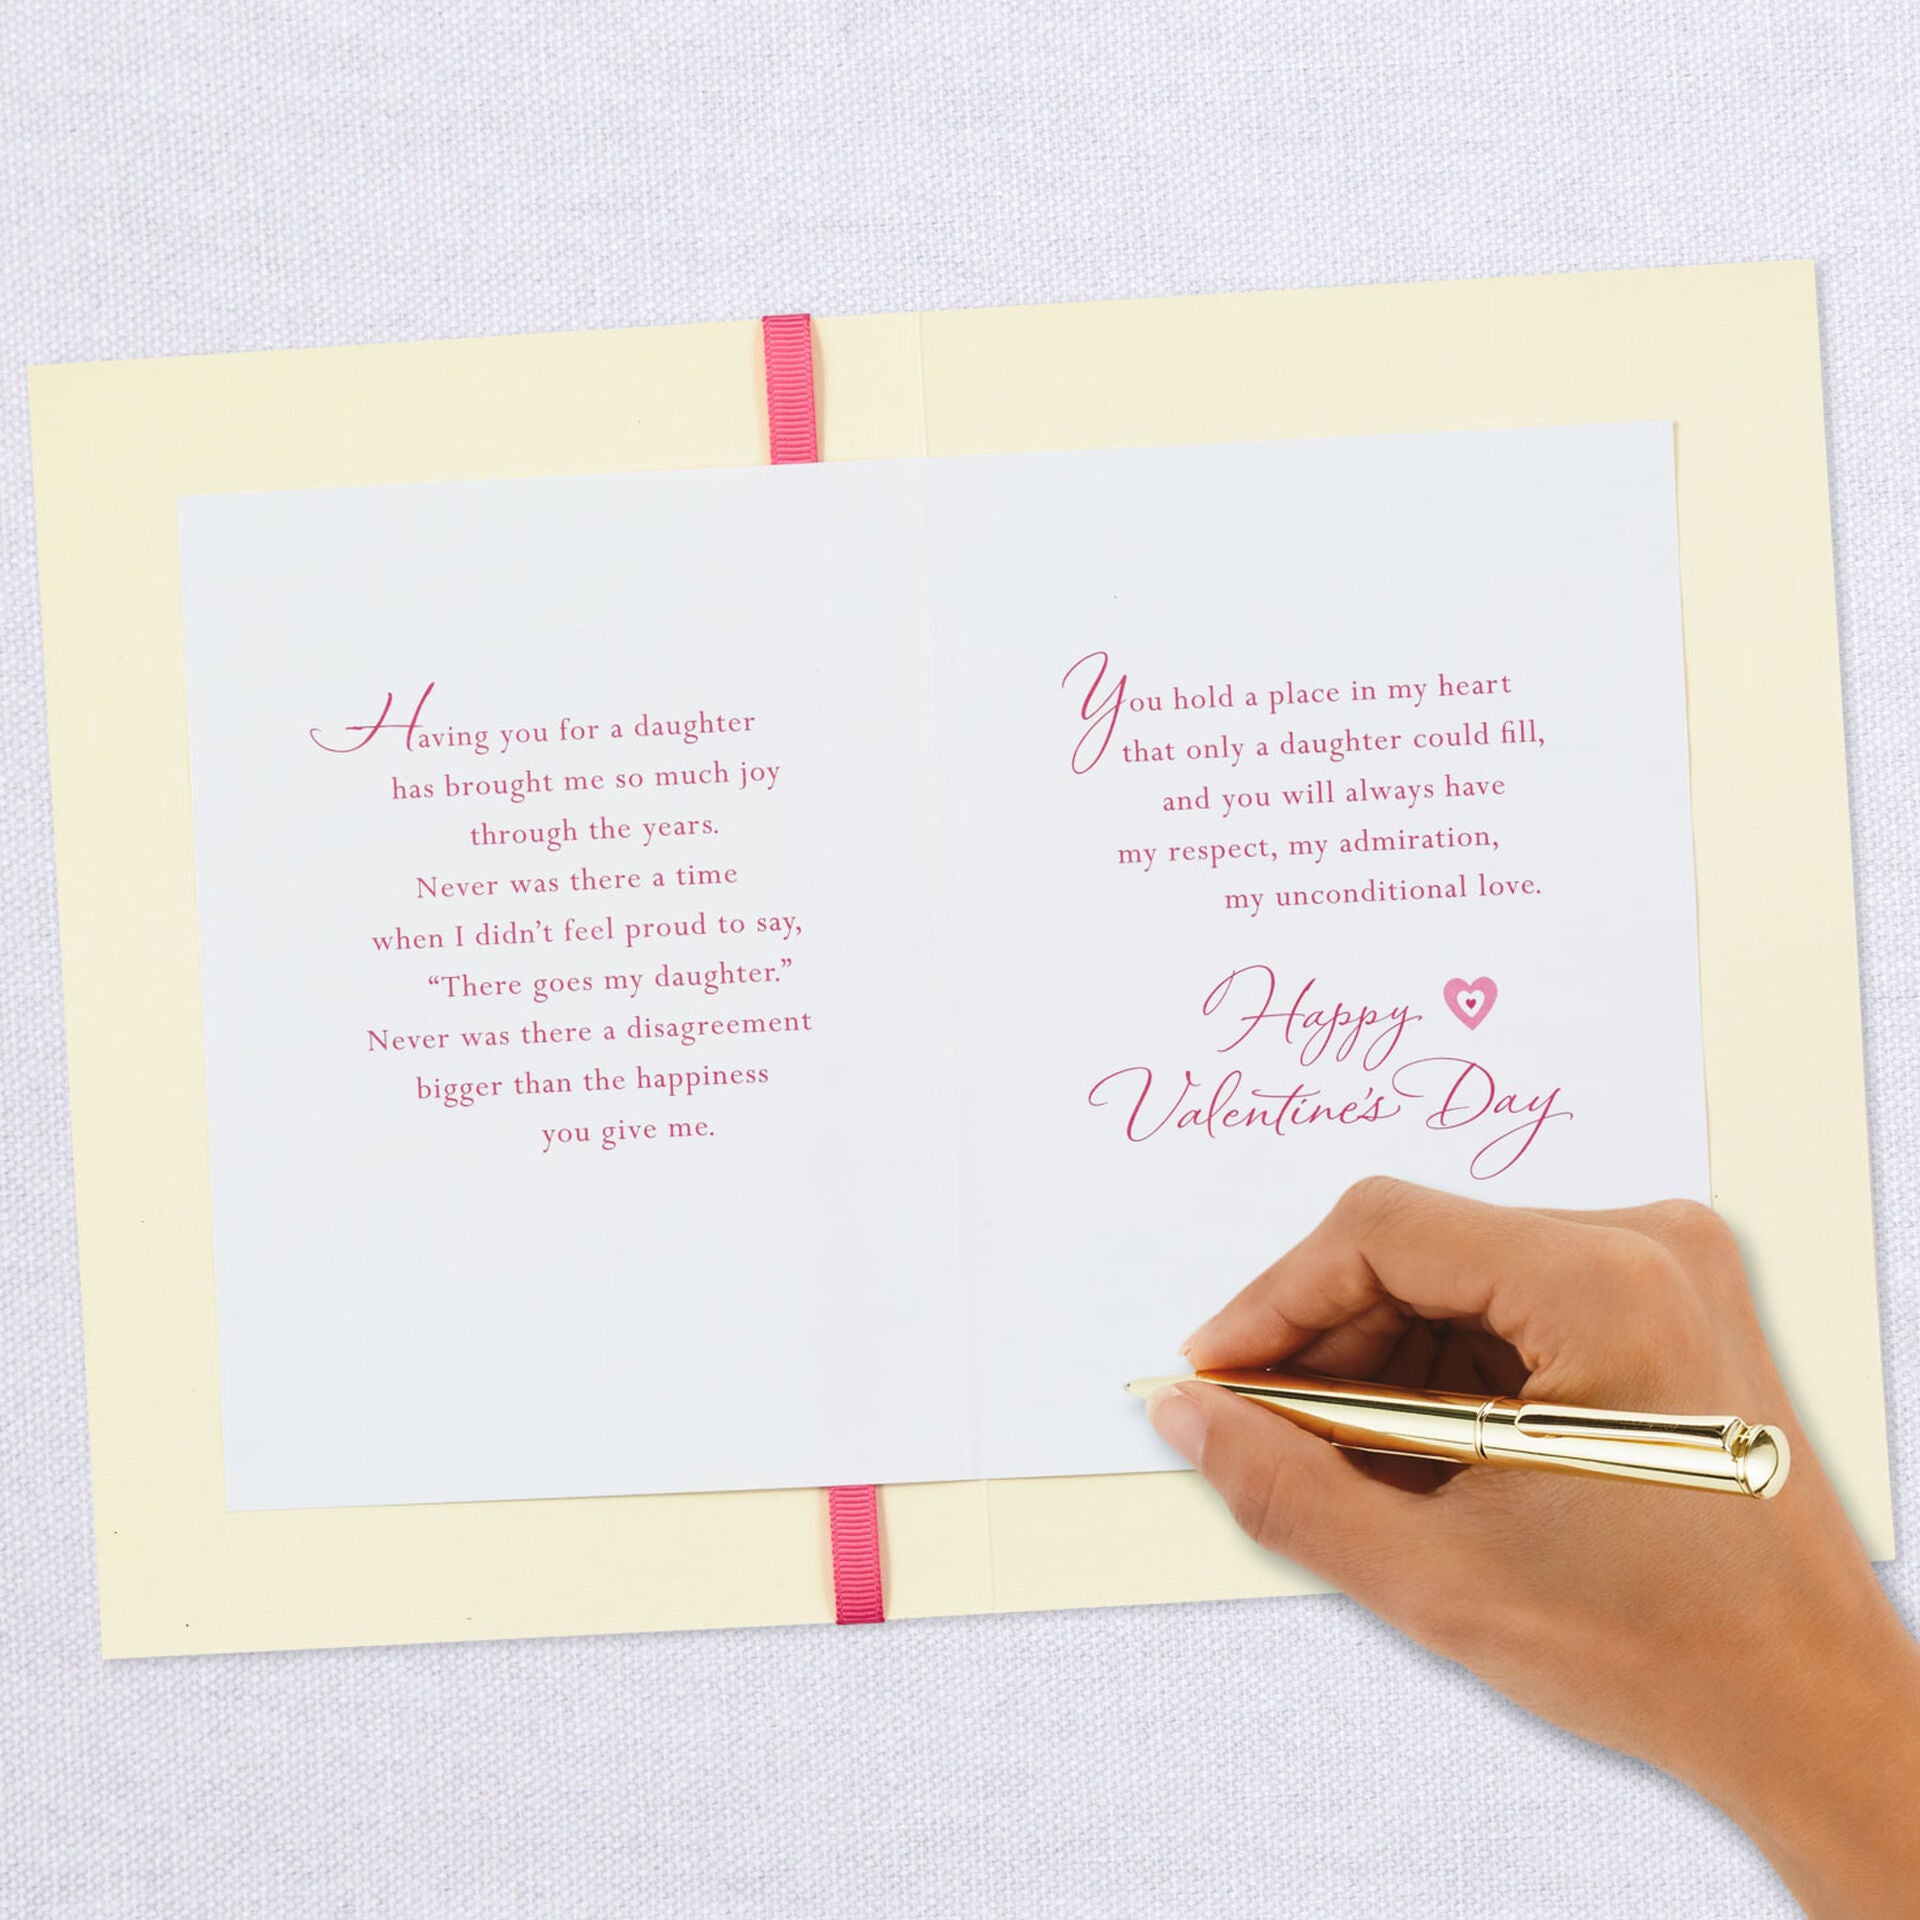 Having you for a daughter
has brought me so much joy
through the years.
Never was there a time
when I didn’t feel proud to say,
“There goes my daughter.”
Never was there a disagreement
bigger than the happiness
you give me.
You hold a place in my heart
that only a daughter could fill,
and you will always have
my respect, my admiration,
my unconditional love.
Happy
Valentine’s Day